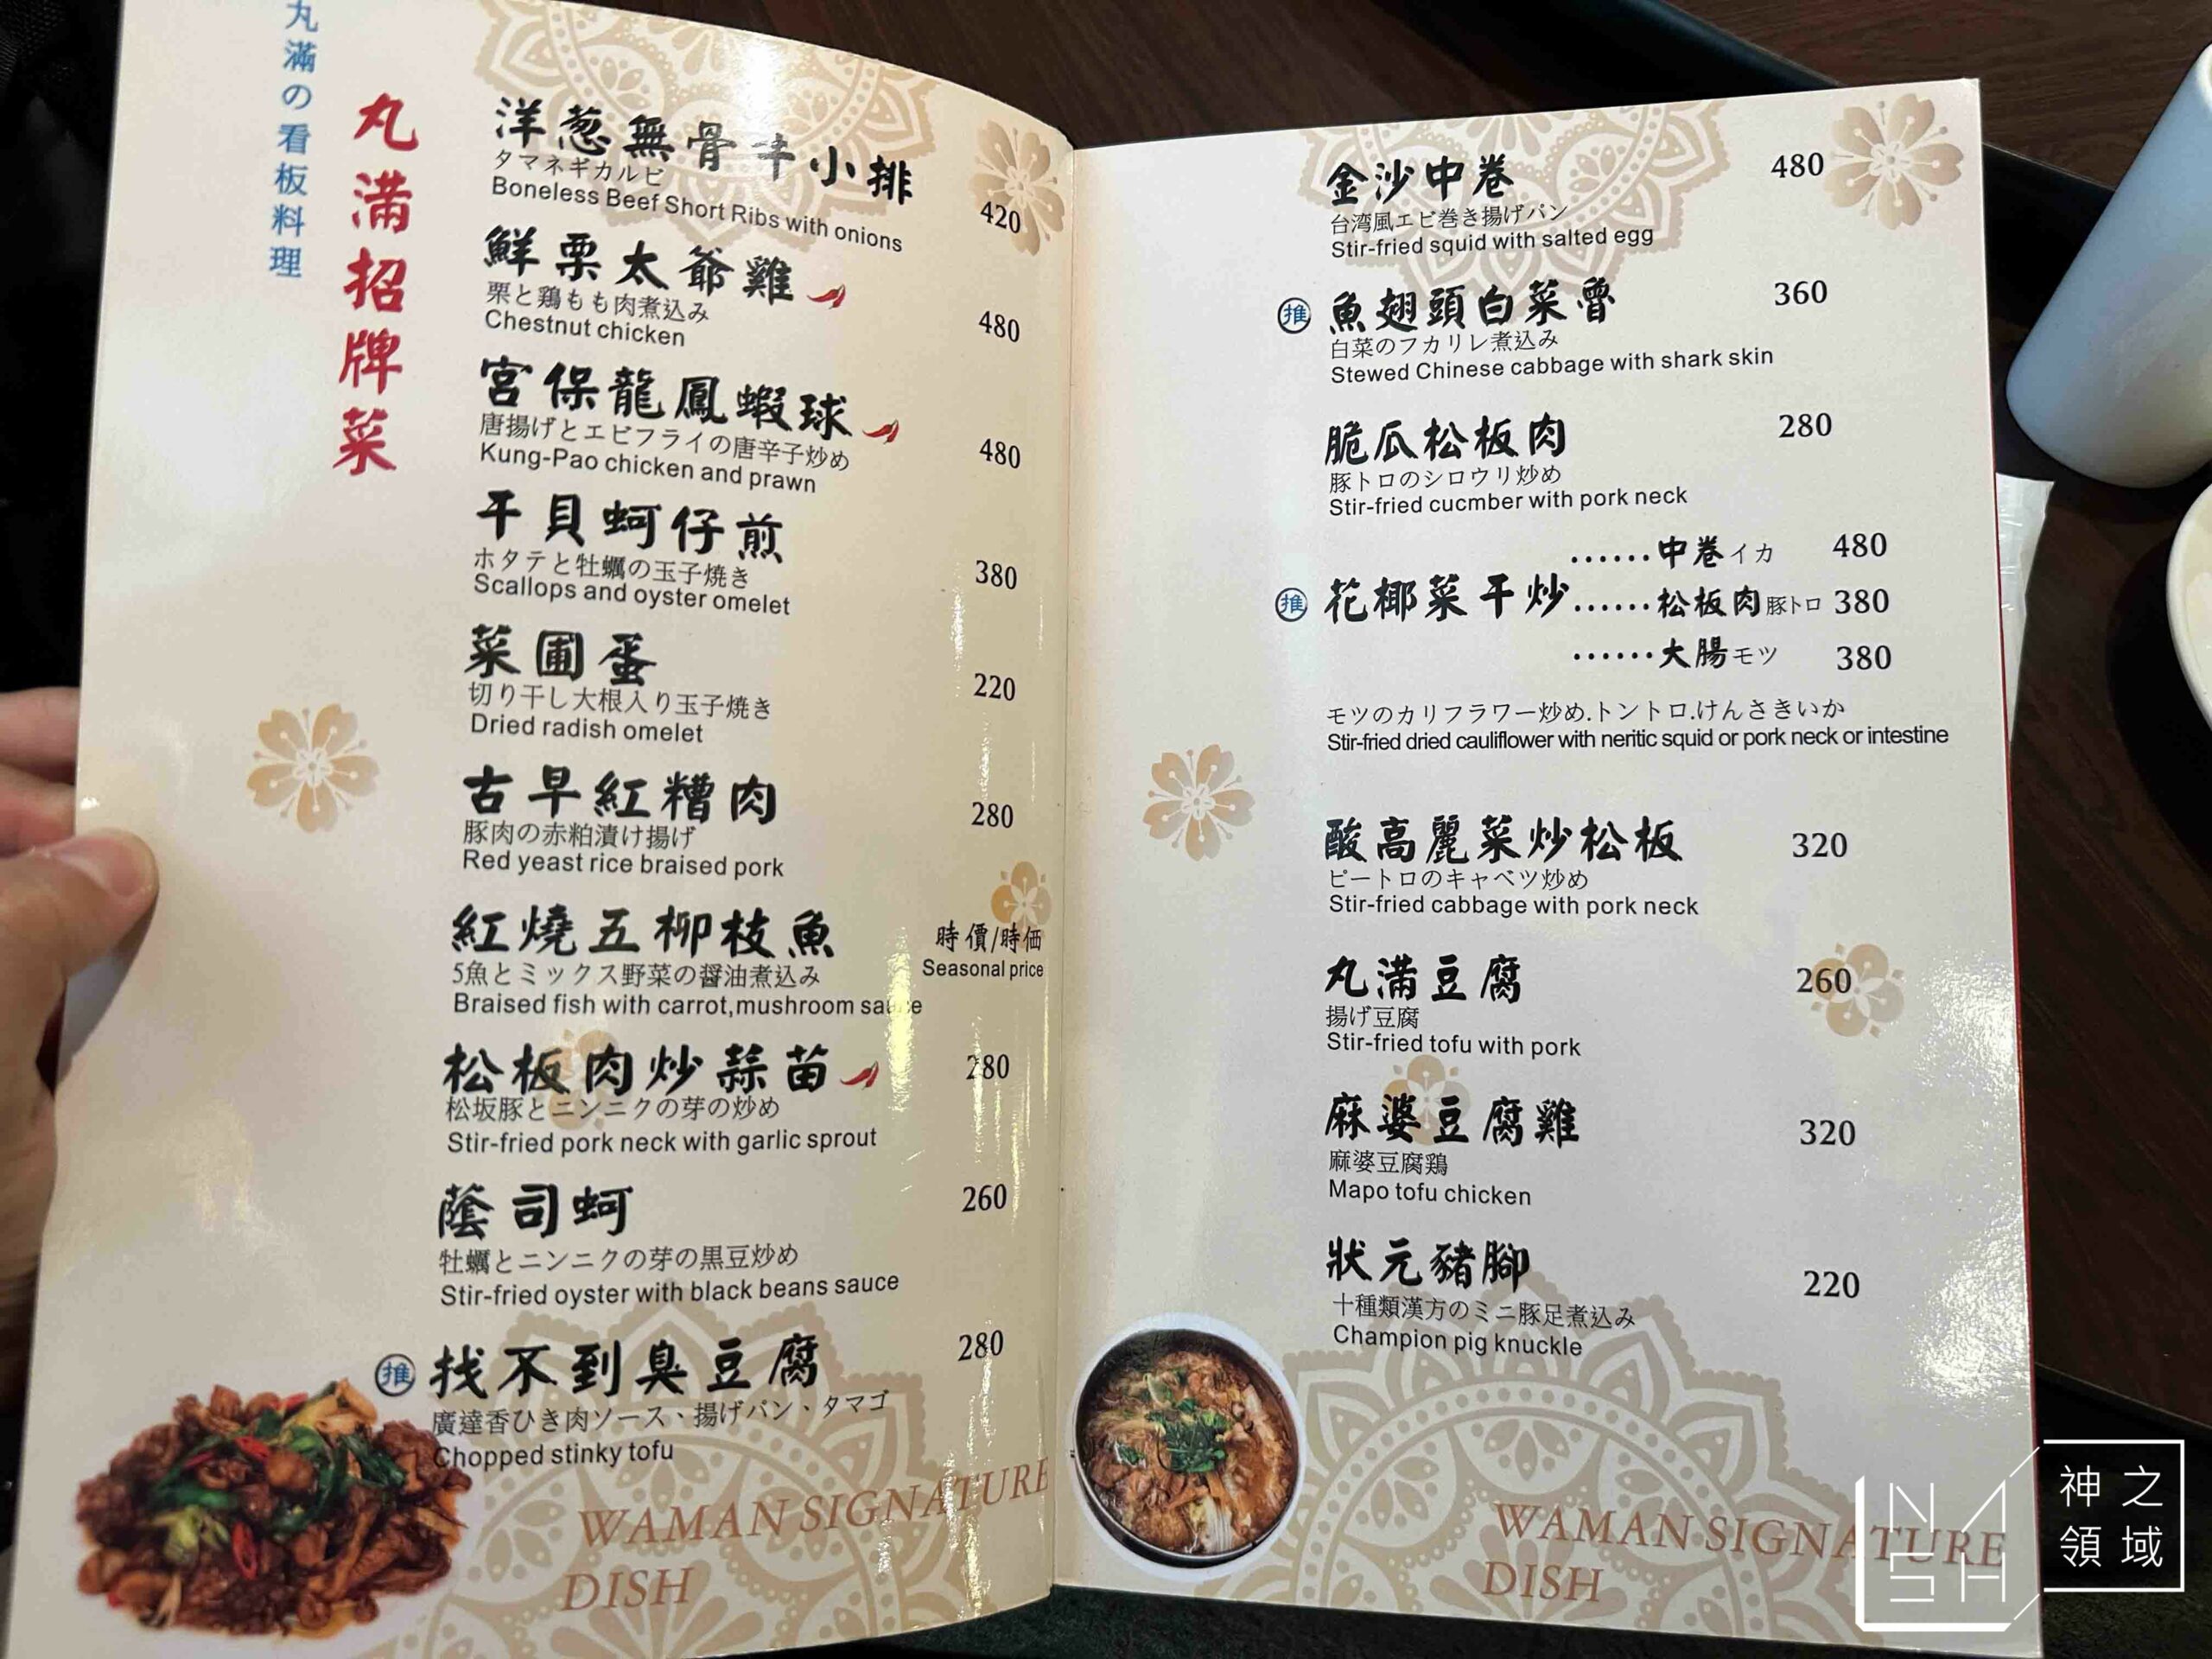 丸滿の看板料理
丸滿招牌菜
洋葱無骨牛小排
タマネギカルビ
Boneless Beef Short Ribs with onions
420
鮮栗太爺雞
栗と鶏もも肉煮込み
Chestnut chicken
480
宮保龍鳳蝦球
唐揚げとエビフライの唐辛子炒め
Kung-Pao chicken and prawn
480
干貝蚵仔煎
ホタテと牡蠣の玉子焼き
Scallops and oyster omelet
380
菜圃蛋
切り干し大根入り玉子焼き
Dried radish omelet
220
古早紅糟肉
豚肉の赤粕漬け揚げ
Red yeast rice braised pork
280
紅燒五柳枝魚
5魚とミックス野菜の醤油煮込み
Braised fish with carrot,mushroom sauce
時價/時価
Seasonal price
松板肉炒蒜苗
松坂豚とニンニクの芽の炒め
Stir-fried pork neck with garlic sprout
280
蔭司蚵
牡蠣とニンニクの芽の黒豆炒め
Stir-fried oyster with black beans sauce
260
推 找不到臭豆腐
廣達香ひき肉ソース、揚げパン、タマゴ
Chopped stinky tofu
280
WAMAN SIGNATURE
DISH
金沙中卷
台湾風エビ巻き揚げパン
Stir-fried squid with salted egg
480
推 魚翅頭白菜魯
白菜のフカリレ煮込み
Stewed Chinese cabbage with shark skin
360
脆瓜松板肉
豚トロのシロウリ炒め
Stir-fried cucmber with pork neck
280
······中卷イカ 480
推 花椰菜干炒······松板肉豚トロ 380
······大腸モツ 380
モツのカリフラワー炒め.トントロ.けんさきいか
Stir-fried dried cauliflower with neritic squid or pork neck or intestine
酸高麗菜炒松板
ピートロのキャベツ炒め
Stir-fried cabbage with pork neck
320
丸滿豆腐
揚げ豆腐
Stir-fried tofu with pork
260
麻婆豆腐雞
麻婆豆腐鶏
Mapo tofu chicken
320
狀元豬腳
十種類漢方のミニ豚足煮込み
Champion pig knuckle
220
WAMAN SIGNATURE
DISH
神之
領域